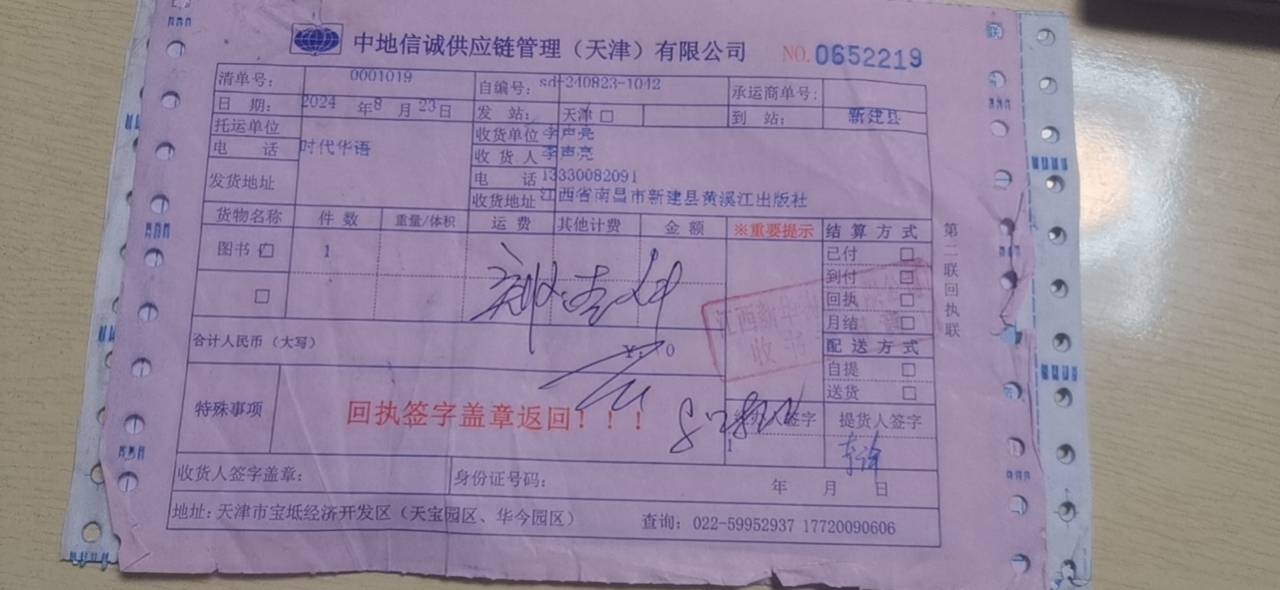 中地信诚供应链管理（天津）有限公司 NO.0652219
清单号： 0001019 自编号： sd-240823-1042 承运商单号：
日 期： 2024 年 8 月 23 日 发 站： 天津 □ 到 站： 新建县
托运单位 时代华语 收货单位 李声亮
电 话 收 货 人 李声亮
发货地址 电 话 13330082091
收货地址 江西省南昌市新建县黄溪江出版社
货物名称 件 数 重量/体积 运 费 其他计费 金 额 ※重要提示 结 算 方 式
图书 □ 1 已付 □
□ 到付 □
回执 □
月结 □
合计人民币（大写） 配 送 方 式
自提 □
送货 □
特殊事项 回执签字盖章返回！！！ 签字 提货人签字
1
收货人签字盖章： 身份证号码： 年 月 日
地址：天津市宝坻经济开发区（天宝园区、华今园区） 查询：022-59952937 17720090606
第二联回执联
江西新华
收书